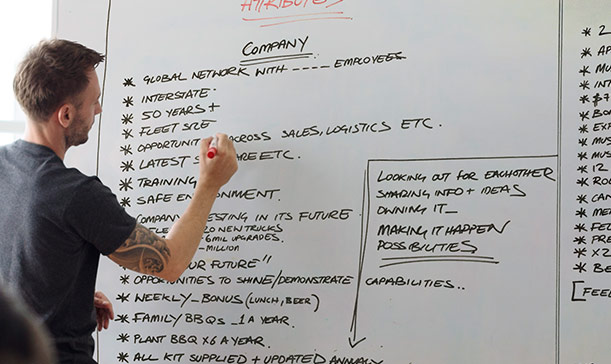 ATTRIBUTES
COMPANY
* GLOBAL NETWORK WITH ---- EMPLOYEES
* INTERSTATE.
* 50 YEARS +
* FLEET SIZE
* ACROSS SALES, LOGISTICS ETC.
* LATEST ETC.
* TRAINING
* SAFE
* COMPANY IN ITS FUTURE
20 NEW TRUCKS
6 MIL UPGRADES.
MILLION
FUTURE"
* OPPORTUNITIES TO SHINE/DEMONSTRATE
* WEEKLY - BONUS (LUNCH, BEER)
* FAMILY BBQs - 1 A YEAR.
* PLANT BBQ x 6 A YEAR.
* ALL KIT SUPPLIED + UPDATED ANNUALLY
LOOKING OUT FOR EACHOTHER
SHARING INFO + IDEAS
OWNING IT_
MAKING IT HAPPEN
POSSIBILITIES
CAPABILITIES..
* 2
* AP
* MU
* INT
* $7
* BON
* EXP
* MUS
* MUS
* 12
* ROO
* CAN
* ME
* FEL
* PR
* X2
* BE
[FEEL